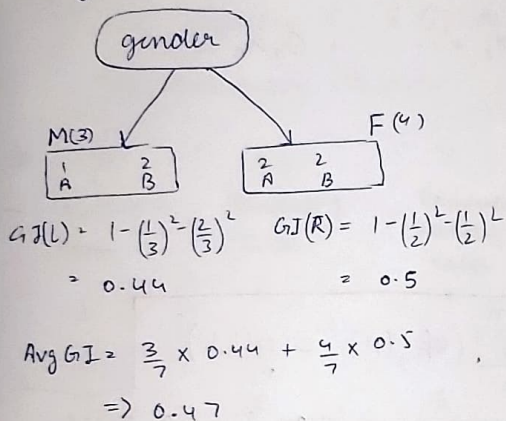 gender
M(3)
F(4)
1 2
A B
2 2
A B
GI(L) = 1-(1/3)²-(2/3)²
= 0.44
GI(R) = 1-(1/2)²-(1/2)²
= 0.5
Avg GI = 3/7 × 0.44 + 4/7 × 0.5
=> 0.47